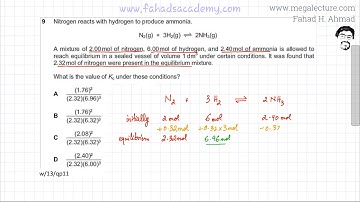 www.fahadsacademy.com
www.megalecture.com
Fahad H. Ahmad
9 Nitrogen reacts with hydrogen to produce ammonia.
N₂(g) + 3H₂(g) ⇌ 2NH₃(g)
A mixture of 2.00 mol of nitrogen, 6.00 mol of hydrogen, and 2.40 mol of ammonia is allowed to
reach equilibrium in a sealed vessel of volume 1 dm³ under certain conditions. It was found that
2.32 mol of nitrogen were present in the equilibrium mixture.
What is the value of Kc under these conditions?
A (1.76)² / (2.32)(6.96)³
B (1.76)² / (2.32)(6.32)³
C (2.08)² / (2.32)(6.32)³
D (2.40)² / (2.32)(6.00)³
N₂ + 3H₂ ⇌ 2NH₃
initially 2mol 6mol 2.40mol
+0.32mol +0.32×3mol -0.3
equilibrium 2.32mol 6.96mol
w/13/qp11